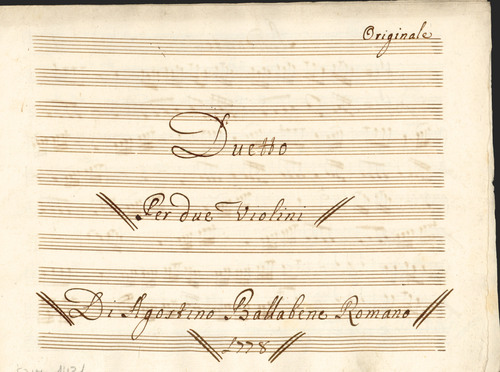 Originale
Duetto
Per due Violini
Di Agostino Ballabene Romano
1778